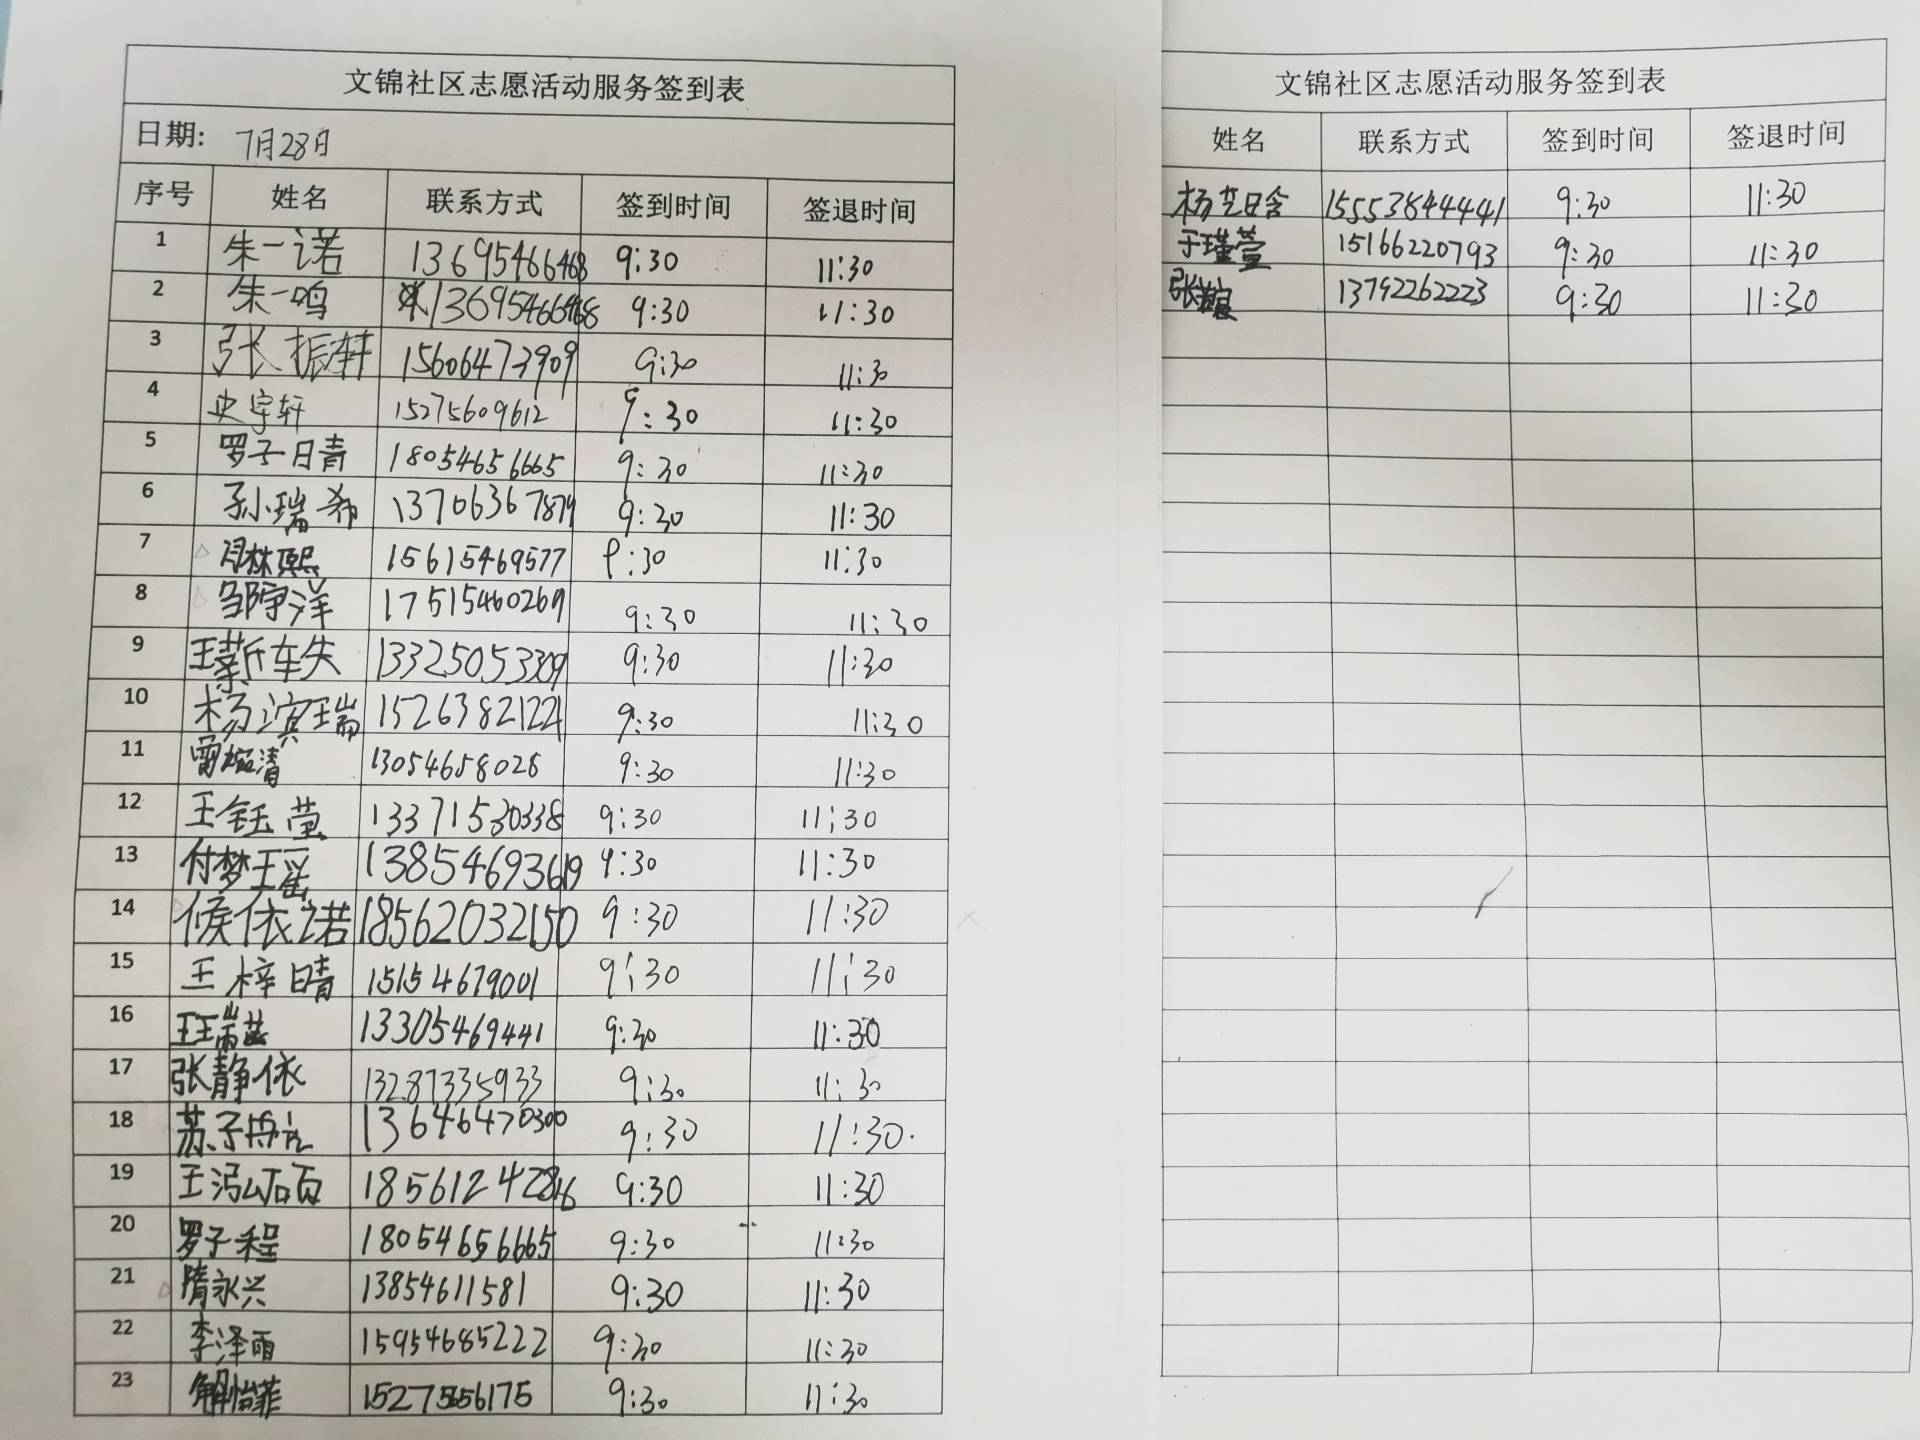 文锦社区志愿活动服务签到表
日期: 7月28日
序号 姓名 联系方式 签到时间 签退时间
1 朱一诺 13695466468 9:30 11:30
2 朱一鸣 13695466468 9:30 11:30
3 张振轩 15606473909 9:30 11:30
4 史宇轩 15275609612 9:30 11:30
5 罗子晴 18054656665 9:30 11:30
6 孙瑞希 13706367879 9:30 11:30
7 林熙 15615469577 9:30 11:30
8 邹宇洋 17515460269 9:30 11:30
9 王 13325053309 9:30 11:30
10 杨滨瑞 15263821221 9:30 11:30
11 雷 清 13054658028 9:30 11:30
12 王钰莹 13371530338 9:30 11:30
13 付梦瑶 13854693619 9:30 11:30
14 候依诺 18562032150 9:30 11:30
15 王梓晴 15154679001 9:30 11:30
16 王瑞 13305469441 9:30 11:30
17 张静依 13287335933 9:30 11:30
18 苏子 13646470300 9:30 11:30
19 王 18561242816 9:30 11:30
20 罗子程 18054656665 9:30 11:30
21 隋永兴 13854611581 9:30 11:30
22 李泽雨 15954685222 9:30 11:30
23 解怡菲 9:30 11:30
文锦社区志愿活动服务签到表
姓名 联系方式 签到时间 签退时间
杨 15553844441 9:30 11:30
于瑾萱 15166220793 9:30 11:30
张 13792262223 9:30 11:30